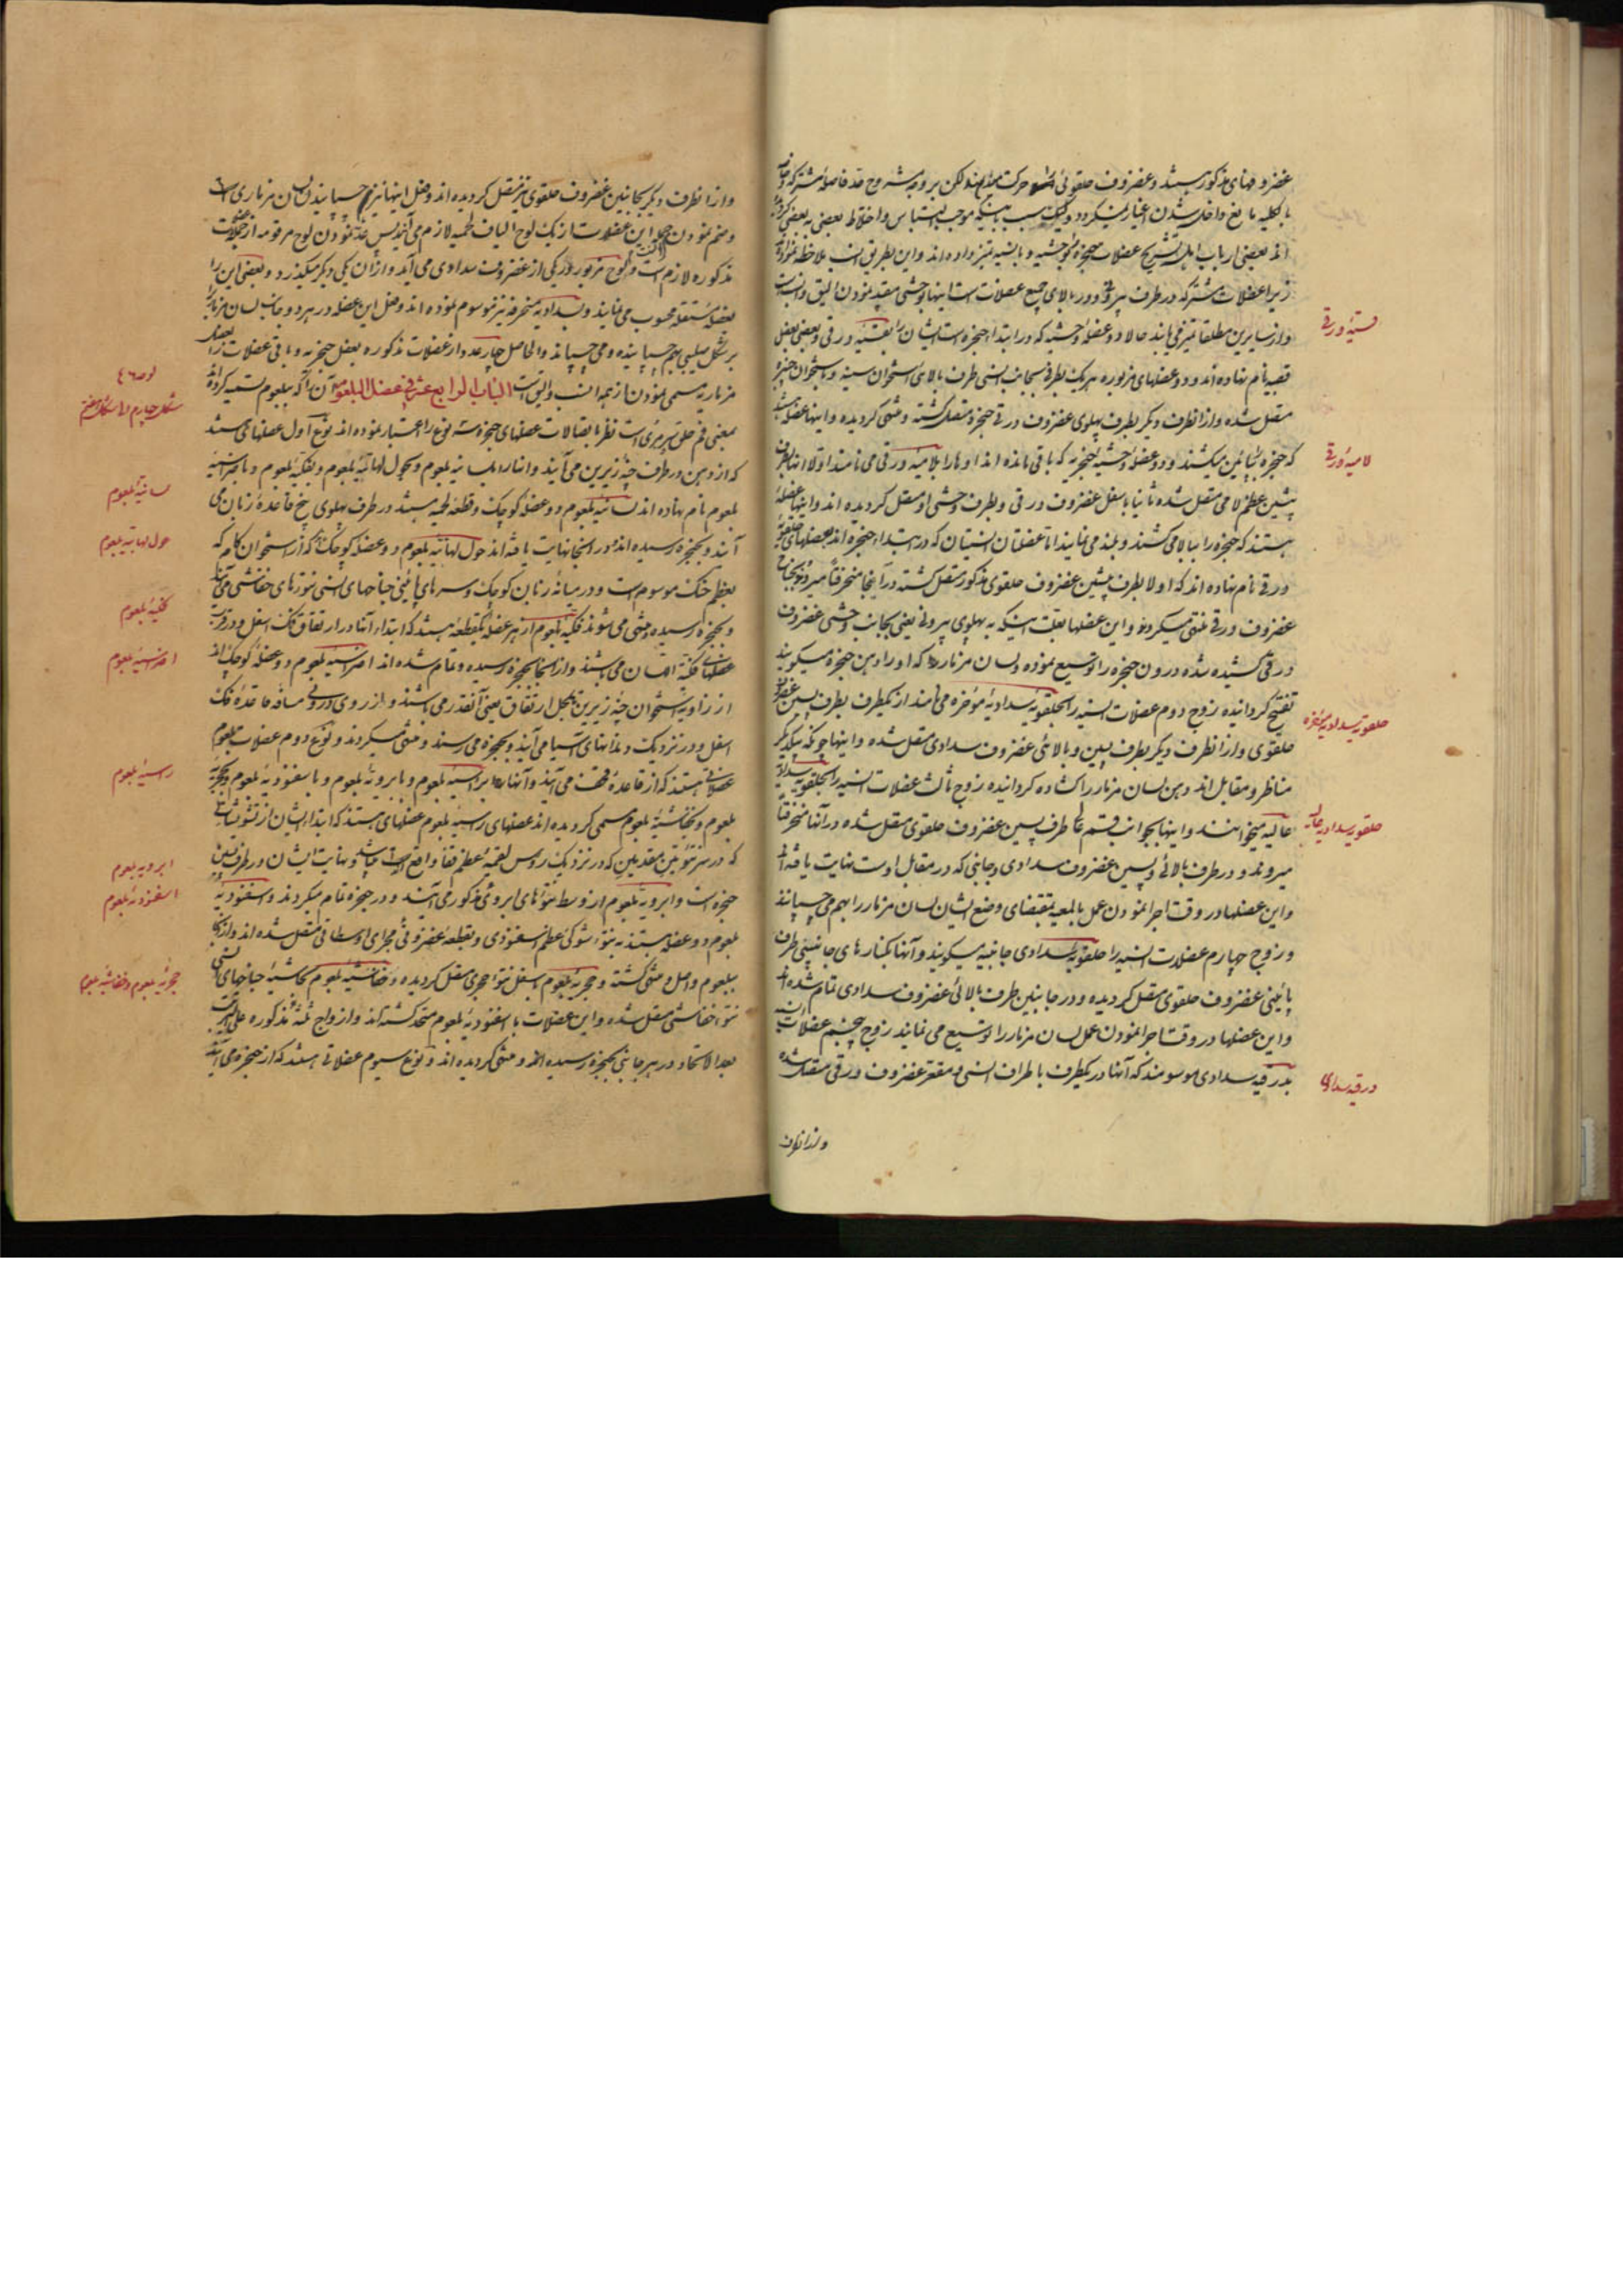 غضروفهای مذکور میشند و غضروف حلقوئی حرکت لکن بر وجه مشروح قد فاصلۀ مشترکه
بالکلیه مانع داخل شدن اغیار نمیکردد ولیکن بسبب اینکه موجب التباس و اختلاط بعضی به بعضی
اند بعضی ارباب اهل تشریح عضلات حنجره بوحشیه و بانسیه تمیز داده اند و این بطریق انسب ملاحظه
زیرا عضلات مشترکه در طرف بیرونی و در بالای جمیع عضلات است اینها بوحشی مقید نمودن الیق و انسب
و از سایرین مطلقا تمیز می یابند حالا دو عضلۀ وحشیه که در ابتدا حنجره است ایشان را بقسیۀ ورقی و بعضی
قسیۀ ورقی
قصبیه نام نهاده اند و دو عضلهای مزبوره هر یک بطرفی بجانب انسی طرف بالائی استخوان سینه و باستخوان
متصل شده و از انطرف دیگر بطرف پهلوی غضروف ورقی حنجره متصل کشته و منتهی کردیده و اینها عضلها
که حنجره را بپائین میکشند و دو عضلۀ وحشیه حنجریه که باقی مانده اند اوها را بلامیۀ ورقی می نامند اولا اینها بطرف
لامیۀ ورقی
پیشین عظم لامی متصل شده ثانیا باسفل غضروف ورقی و بطرف وحشی او متصل کردیده اند و اینها عضلۀ
هستند که حنجره را ببالا می کشند و بلند می نمایند اما عضلتان انسیتان که در ابتداء حنجره اند بعضلهای حلقویۀ
ورقی نام نهاده اند که اولا بطرف پیشین غضروف حلقوی مذکور متصل کشته در آنجا منحرفاً میرود و بجناح
غضروف ورقی منتهی میکردد و این عضلها بعلت اینکه به پهلوی بیرونی یعنی بجانب وحشی غضروف
ورقی کشیده شده درون حنجره را توسیع نموده و لسان مزمار را که او را دهن حنجره میکویند
تفتیح کردانیده زوج دوم عضلات انسیه را بحلقویۀ سدادیۀ مؤخره می نامند از یکطرف بطرف پسین غضروف
حلقویۀ سدادیۀ مؤخره
حلقوی و از انطرف دیکر بطرف پسین و بالائی غضروف سدادی متصل شده و اینها چونکه بیکدیکر
مناظر و مقابل اند دهن لسان مزمار را کشاده کردانیده زوج ثالث عضلات انسیه را بحلقویۀ سدادیۀ
عالیه میخوانند و اینها بجوانب قسم طرف پسین غضروف حلقوی متصل شده در آنها منحرفاً
حلقویۀ سدادیۀ عالیه
میروند و در طرف بالائی و پسین غضروف سدادی و جانبی که در مقابل اوست نهایت یافته اند
و این عضلها در وقت اجرا نمودن عمل بالمعیه بمقتضای وضع ایشان لسان مزمار را بهم می چسپانند
و زوج چهارم عضلات انسیه را حلقویۀ سدادی جانبیه میکویند و آنها بکنارهای جانبینی طرف
پائینی غضروف حلقوی متصل کردیده و در جانبین طرف بالائی غضروف سدادی تمام شده اند
و این عضلها در وقت اجرا نمودن عمل لسان مزمار را توسیع می نمایند زوج پنجم عضلات انسیه
بدرقیه سدادی موسومند که آنها در یکطرف باطراف انسی و مقعر غضروف ورقی متصل شده
درقیه سدادی
و از انطرف
و از انطرف دیکر بجانبین غضروف حلقوی نیز متصل کردیده اند و فعل اینها نیز چسپانیدن لسان مزماری است
و ضم نمودن این عضلات از یک لوح الیاف لحمیه لازم می آید پس عد نمودن لوح مرقومه از عضلات
مذکوره لازم است و لوح مزبور در یکی از غضروف سدادی می آید و از ان یکی دیکر میکذرد و بعضی این را
بعضلۀ مستقله محسوب می نمایند و بسدادیه منحرفه نیز موسوم نموده اند و فعل این عضله در هر دو جانب لسان مزمار را
بر شکل صلیبی بهم چسپانیده و می چسپاند و الحاصل چار عدد از عضلات مذکوره بعضل حنجریه و باقی عضلات را بعضل
مزماریه مسمی نمودن از همه انسب و الیق است الباب الرابع عشر فی عضل البلعوم آن را که ببلعوم تسمیه کرده اند
لوحه ٤٦
شکل چهارم و شکل هفتم
بمعنی فم حلق و مری است نظر باتصالات عضلهای حنجره سه نوع را اعتبار نموده اند نوع اول عضلهای هستند
که از دهن و از طرف چنۀ زیرین می آیند و آنها را بلسانیۀ بلعوم و بحول لهاتیۀ بلعوم و بفکیۀ بلعوم و باضراسیۀ
بلعوم نام نهاده اند لسانیۀ بلعوم دو عضلۀ کوچک و قطعۀ لحمیه میشند در طرف پهلوی بیخ قاعدۀ زبان می
لسانیۀ بلعوم
آیند و بحنجره رسیده اند و در انجا نهایت یافته اند حول لهاتیۀ بلعوم دو عضلۀ کوچک اند که از استخوان کام که
حول لهاتیۀ بلعوم
بعظم حنک موسوم است و در میانه زنان کوچک و سرهای پائینی جناحهای انسی نتوءهای خفاشی می آیند
و بحنجره رسیده و منتهی می شوند فکیۀ بلعوم از هر عضله یکقطعه میشند که ابتداء آنها در ارتفاق فک اسفل و در قرب
فکیۀ بلعوم
عضلهای فکیۀ لسان می باشند و از انجا بحنجره رسیده و تمام شده اند اضراسیۀ بلعوم دو عضلۀ کوچک اند
اضراسیۀ بلعوم
از زاویۀ استخوان چنۀ زیرین تا محل ارتفاق یعنی آنقدر می باشند و از روی درونی مسافۀ قاعدۀ فک
اسفل و در نزدیک دندانهای آسیا می آیند و بحنجره می رسند و منتهی میکردند و نوع دوم عضلات بلعوم
عضلاتی هستند که از قاعدۀ قحف می آیند و آنها را براسیۀ بلعوم و بابرویۀ بلعوم و باسفنودیۀ بلعوم و بحجریۀ
راسیۀ بلعوم
بلعوم و بخفاشیۀ بلعوم مسمی کردیده اند عضلهای راسیۀ بلعوم عضلهای هستند که ابتداء ایشان از نتو
که در سر نتوئین مقدمین که در نزدیک رؤس لقمیۀ عظم قفا واقع است و نهایت ایشان در طرف پسین
حنجره است و ابرویۀ بلعوم از وسط نتوءهای ابروی مذکور می آیند و در حنجره تمام میکردند و اسفنودیۀ
ابرویۀ بلعوم
اسفنودیۀ بلعوم
بلعوم دو عضله هستند به نتوء شوکی عظم اسفنودی و بقطعۀ غضروفی مجرای اوسطاقی متصل شده اند و از انجا
ببلعوم واصل و منتهی کشته و حجریۀ بلعوم باسفل نتوء حجری متصل کردیده و خفاشیۀ بلعوم بحاشیۀ جناحهای انسی
حجریۀ بلعوم و خفاشیۀ بلعوم
نتوء خفاشی متصل شده و این عضلات با اسفنودیۀ بلعوم متحد کشته اند و ازواج ثلثۀ مذکوره علی الترتیب
بعد الاتحاد در هر جانبی بحنجره رسیده اند و منتهی کردیده اند و نوع سیوم عضلاتی هستند که از حنجره می آیند